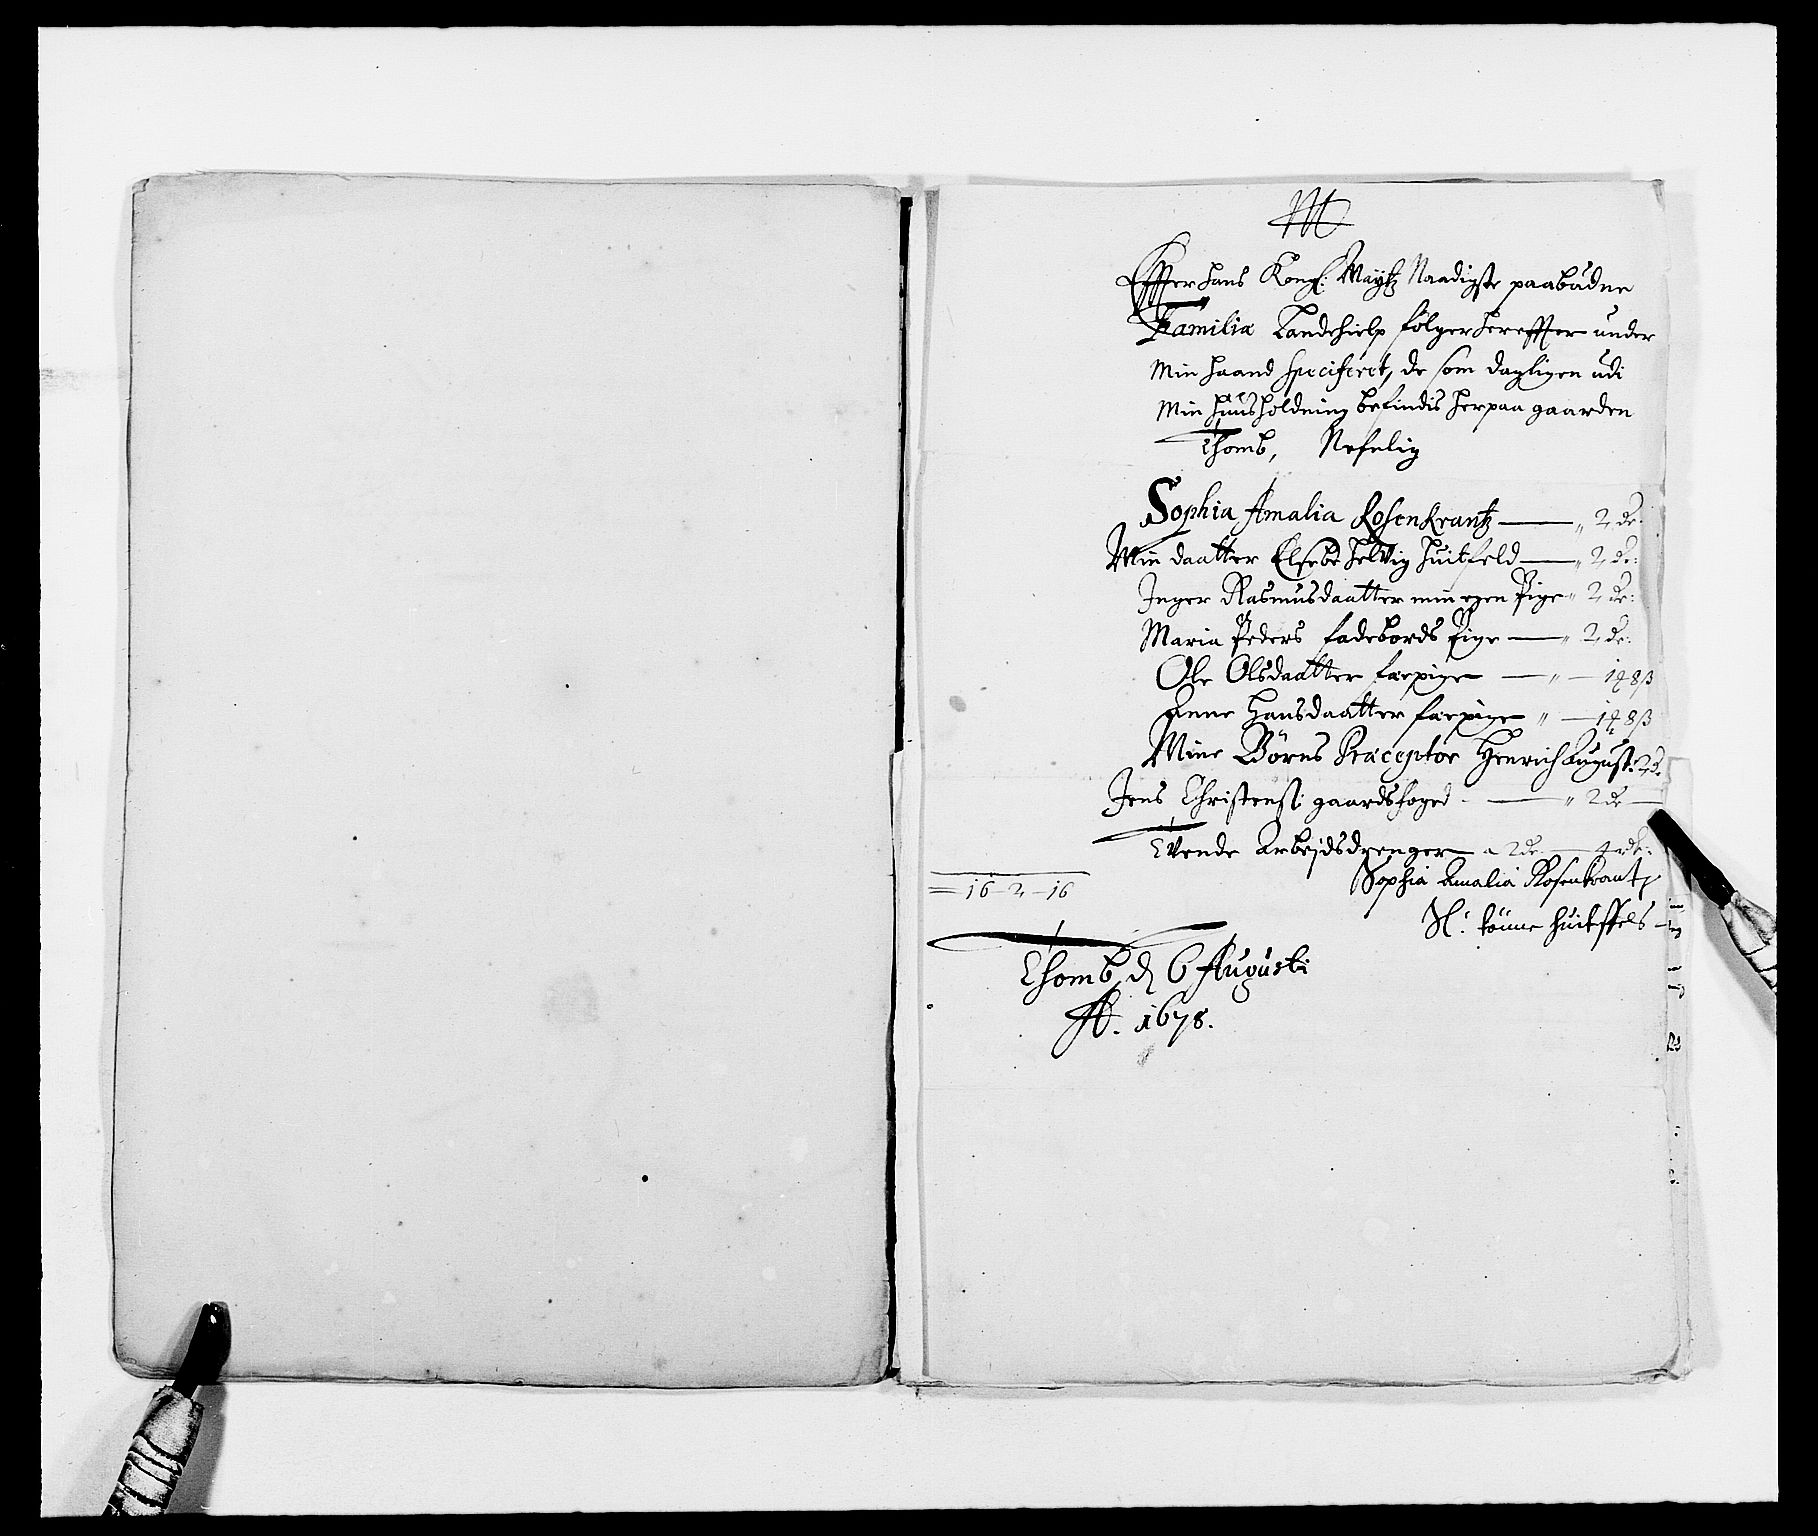 M
Effter Hans Kongl: Maytz Naadigste paabudne
Familie Landehielp følger hereffter under
Min Haand specificeret, de som dagligen udi
Min Huusholdning befindis her paa gaarden
Thomb, Nefnlig
Sophia Amalia Rosenkrantz — „ 2 dr.
Min daatter Elsebe Helvig Huitfeld — „ 2 dr:
Inger Rasmusdaatter min egen Pige „ 2 dr:
Maria Peders fadebords Pige — „ 2 dr:
Ole Olsdaatter fæpige — „ — 1 ¼ 8 ß
Anne Hansdaatter fæpige „ — 1 ¼ 8 ß
Mine Børns Præceptor Henrich August: 2 d.
Jens Christens: gaardsfoged — „ 2 dr —
Tvende Arbejdsdrenger a 2 dr. — 4 rdr:
= 16 - 2 - 16
Sophia Amalia Rosenkrantz
Sl: tönne Huitffels
Thomb d 6 Augusti
Ao. 1678.